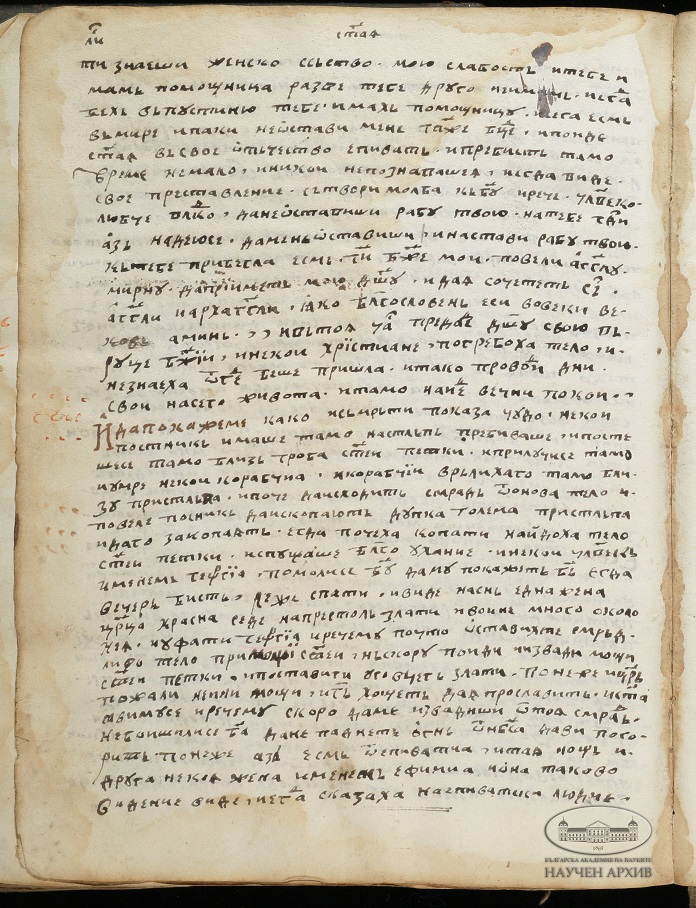 ти знаеши женско сьство · мою слабость и тебе и
мамь помощница разве тебе друго неимамь · иега
бехь вьпустиню тебе имахь помощницу · иега есмь
вьмире ипаки неѡстави мене таже бце · ипоиде
стаа вьсвое ѿчьество епивать · ипребисть тамо
време немало, иникои непознавашеа, иегда виде
свое преставление · сьтвори молба кьбу ирече · члвеко
любче влко, данеѡставиши рабу твою · натебе гди
азь надеюсе · даменеѡставиши, инастави рабу твою
кьтебе прибегла есмь · ги бже мои · повели агглу
мирну · даприиметь мою дшу · идаа сочететь
агтли иархагтли, ꙗко блгословень еси вовеки ве
кове аминь ·, ивьтоа ча предаде дшу свою вь
руце бжїи, инекои хрїстиане, погребоха тело, и
незнаеха ѿгде беше пришла · итако проводи дни
свои насего живота · итамо наиде вечни покои ·,
И дапокажеме како исьмрьти показа чудо, некои
постникь имаше тамо настльпь пребиваше, ипосте
шесе тамо близь гроба стеи петки · иприлучисе тамо
иумре некои корабчиа, икорабчїи врьлихаго тамо бли
зу пристльпа, ипоче даисходить смрадь ѿонова тело и
повеле посникь даископають дупка голема пристльпа
идаго закопать · егда почеха копати наидоха тело
стеи петки · испущаше блго ухание · инекои члвекь
именемь геѡргїа, помолисе бу даму покажеть бь егда
вечерь бисть, леже спати, ивиде наснь една жена
црца красна седе напрестоль злати ивоине много около
неа · иуфати геѡргїа иречему почто ѡставихте смрьд
ливо тело при мощи стеи, ньскору поиди иизвади мощи
стеи петки, ипоставити у ковчегь злати · понеже црь
пожали неини мощи, ибь хощеть даа прославить · иста
авимусе иречему скоро даме извадиши ѿтоа смрадь
небоишлисе ба дане паднеть огнь ѿнбса дави пого
рить понеже азь есмь ѿепиватиа, итаа нощь и
друга некоа жена именемь ефимиа иѡна таково
видение виде, иега сказаха наепиватски людие ·
БЪЛГАРСКА АКАДЕМИЯ НА НАУКИТЕ
НАУЧЕН АРХИВ